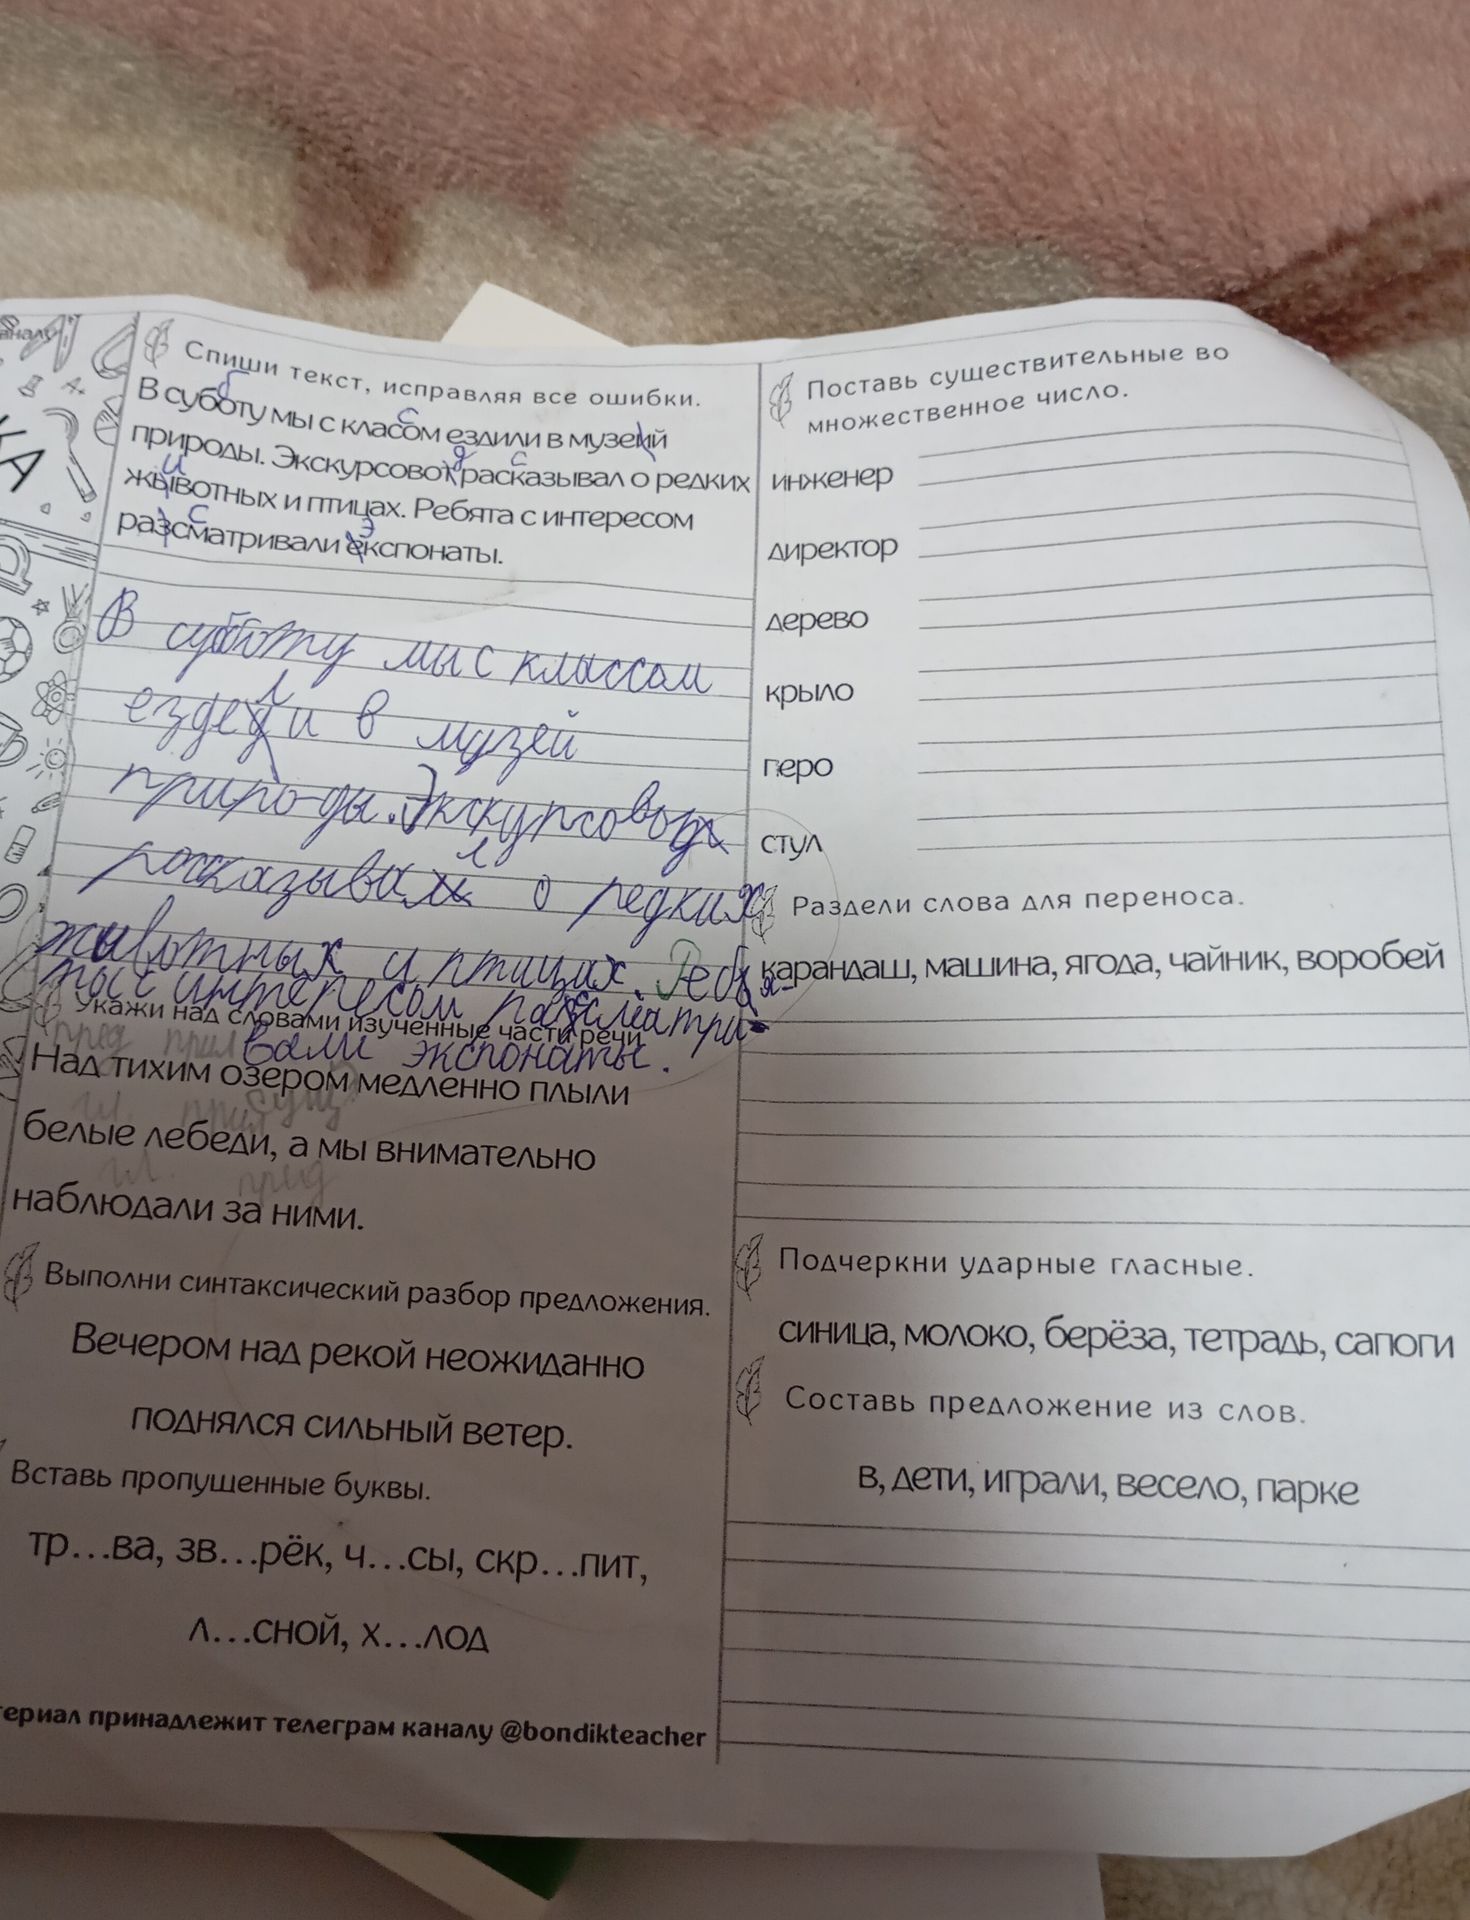 Спиши текст, исправляя все ошибки.
В субботу мы с класом ездили в музей
природы. Экскурсовот расказывал о редких
жывотных и птицах. Ребята с интересом
разсматривали експонаты.
В субботу мы с классом
ездели в музей
приро-ды. Экскурсовод
рассказывал о редких
животных и птицах. Ребя-
та с интересом рассматри-
вали экспонаты.
Укажи над словами изученные части речи
пред прил
Над тихим озером медленно плыли
гл. прил сущ
белые лебеди, а мы внимательно
гл. пред
наблюдали за ними.
Выполни синтаксический разбор предложения.
Вечером над рекой неожиданно
поднялся сильный ветер.
Вставь пропущенные буквы.
тр...ва, зв...рёк, ч...сы, скр...пит,
л...сной, х...лод
териал принадлежит телеграм каналу @bondikteacher
Поставь существительные во
множественное число.
инженер
директор
дерево
крыло
перо
стул
Раздели слова для переноса.
карандаш, машина, ягода, чайник, воробей
Подчеркни ударные гласные.
синица, молоко, берёза, тетрадь, сапоги
Составь предложение из слов.
в, дети, играли, весело, парке